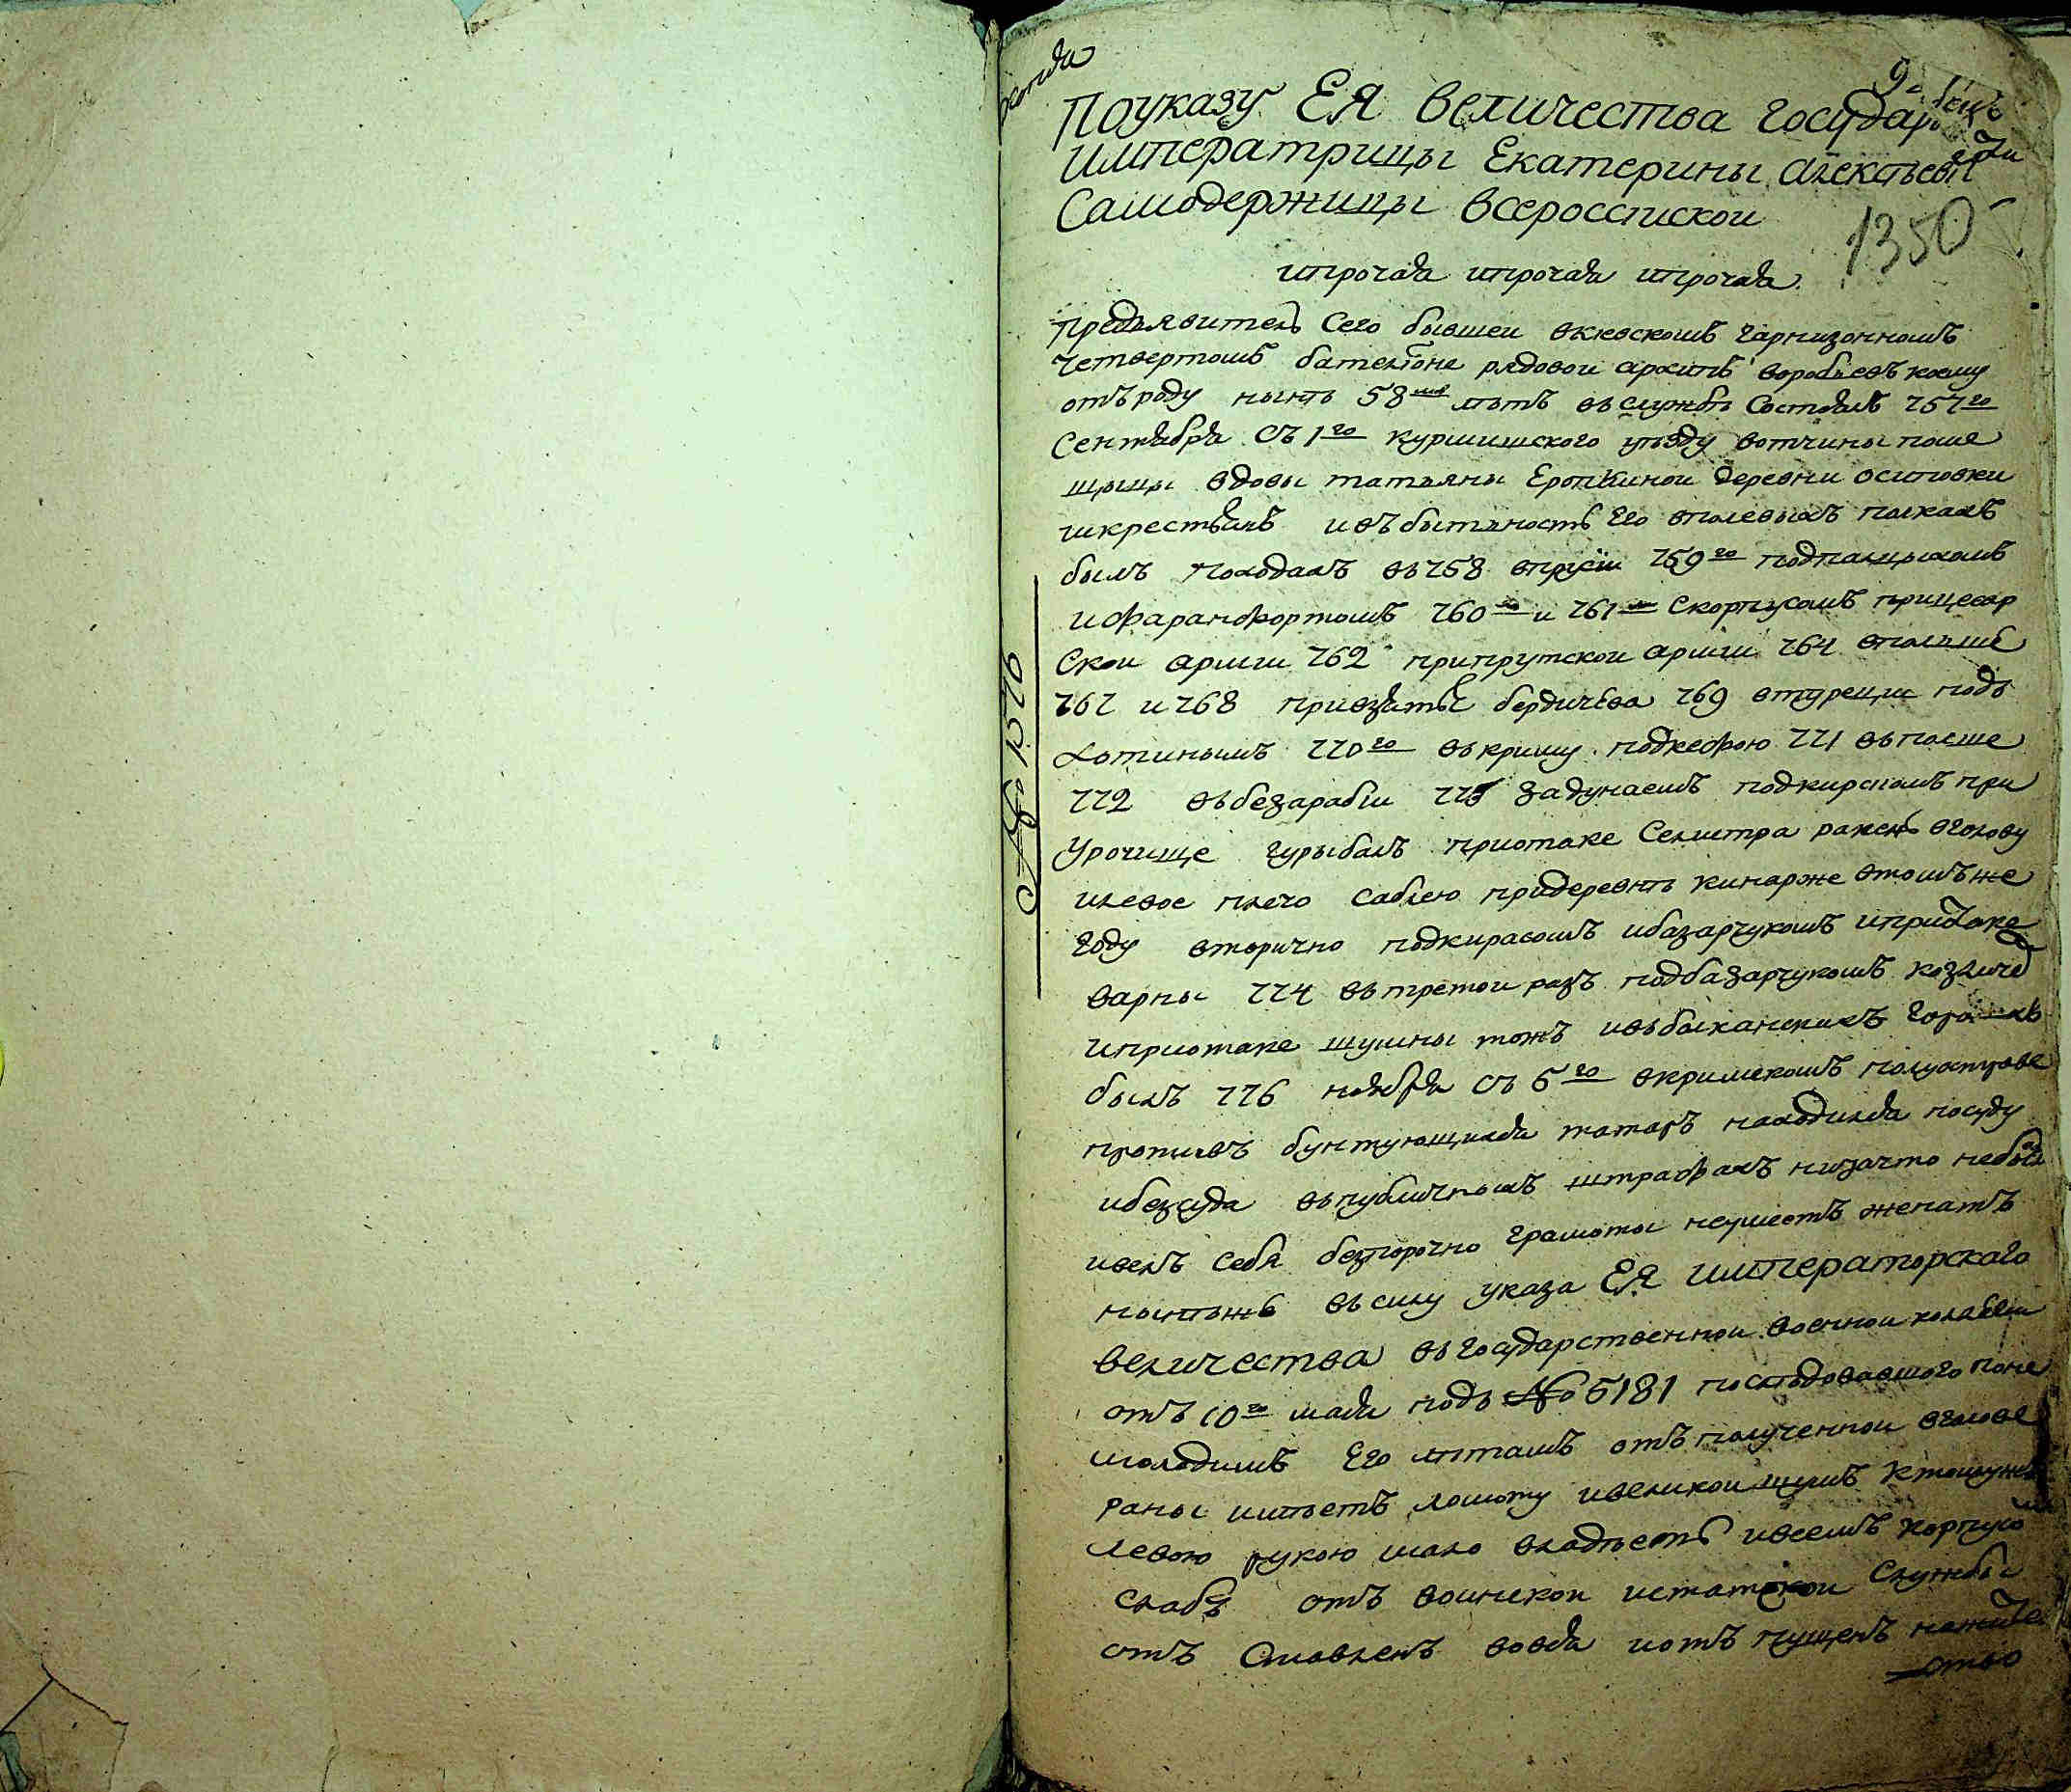 копиа
9
Поуказу ЕЯ величества государ
императрицы Екатерины алекѣеви
Самодержицы всероссиской
ипрочаꙗ ипрочаꙗ ипрочаꙗ
1350
предъявитель сего бывшей вкіевскомъ гарнизонномъ
четвертомъ баталионе рядовой архипъ воробьевъ коему
отъроду нынѣ 58 лѣтъ въслужбѣ состоялъ 757го
сентября съ 1го курмишского уѣзду вотчины поме
щицы вдовы татьяны Еропкиной деревни осиповки
искрестьянъ ивъбытность Его вполевыхъ полкахъ
былъ походахъ въ758 впрусіи 759го подпалцыхомъ
ифаранфортомъ 760го и 761го скорпусомъ прицесар
ской армии 762 припрутской армии 764 вполше
767 и 768 привзятье бердичева 769 втуреции подъ
хотинымъ 770го вькриму подкефою 771 въполше
772 въбезарабіи 773 задунаемъ подкирсномъ при
урочище гурыбалъ приотаке Селистра раненъ вголову
илевое плечо саблею придеревнѣ кинарже втомъже
году вторично подкирасомъ ибазарчукомъ иприотаке
варны 774 вьтретой разъ подбазарчукомъ козличе
иприотаке шумны тожъ ивьбалканскихъ горахъ
былъ 776 ноября съ 6го вкримскомъ полуострове
противъ бунтующихся татаръ находился посуду
ибезсуда вьпубличныхъ штрафахъ низачто небылъ
ивелъ себя безпорочно грамоты неумеетъ женатъ
нынѣжъ вьсилу указа ЕЯ императорского
величества вьгосударственной военной коллегіи
отъ 10го маія подъ № 5181 послѣдовавшого поне
молодимъ Его лѣтамъ отъполученной вголове
раны имѣетъ ломоту ивеликой шумъ ктомужъ
левою рукою мало владѣетъ ивсемъ корпусомъ
слабъ отъ воинской истатской службы
отъ ставленъ вовся иотъ пущенъ нажите
ство
№ 1576